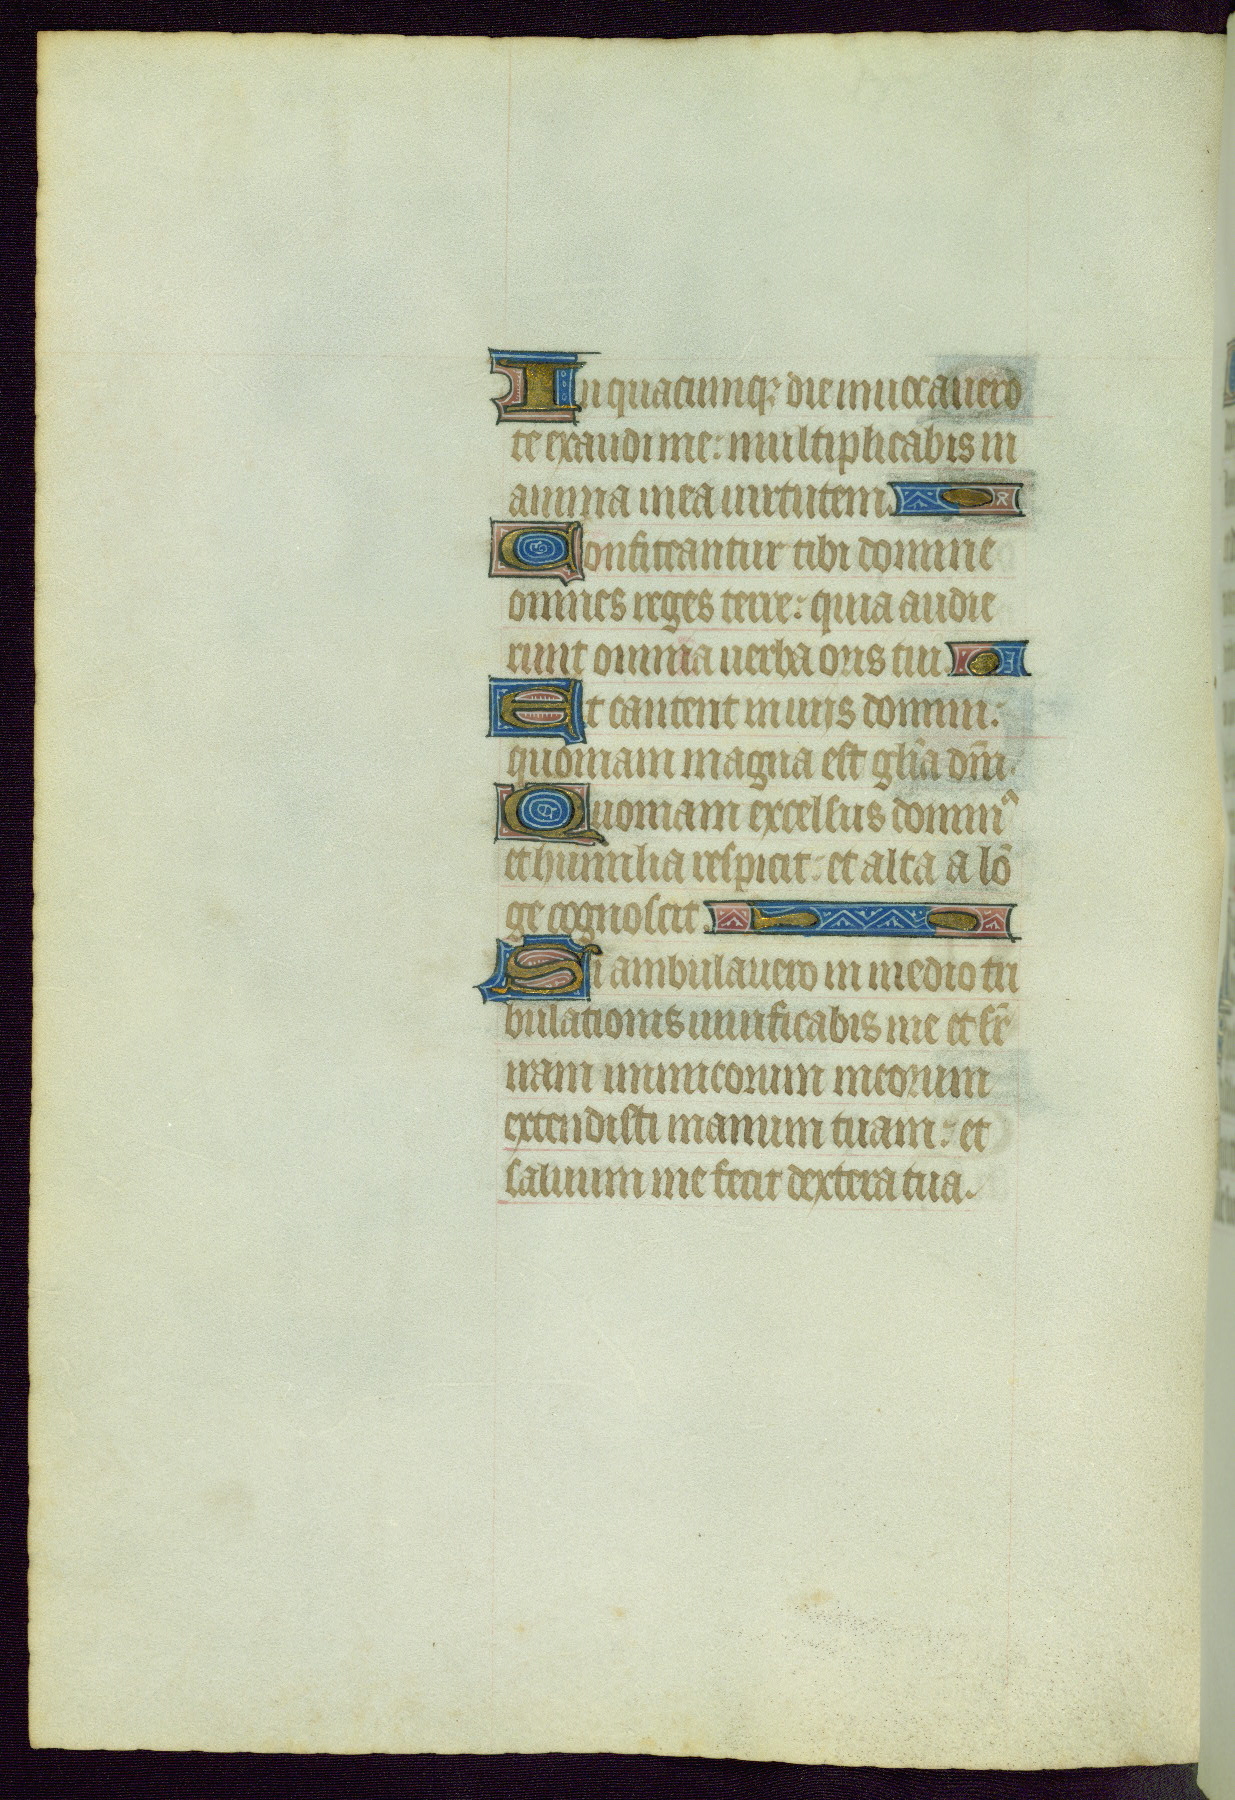 In quacumq; die inuocauero
te exaudi me: multiplicabis in
anima mea uirtutem.
Confiteantur tibi domine
omnes reges terre: quia audie
runt omnia uerba oris tui.
Et cantent in uijs domini:
quoniam magna est gl̄ia dn̄i.
Quoniam excelsus dominꝰ
et humilia respicit: et alta a lō
ge cognoscit.
Si ambulauero in medio tri
bulationis uiuificabis me et sr̄
iram inimicorum meorum
extendisti manum tuam: et
saluum me fecit dextera tua.